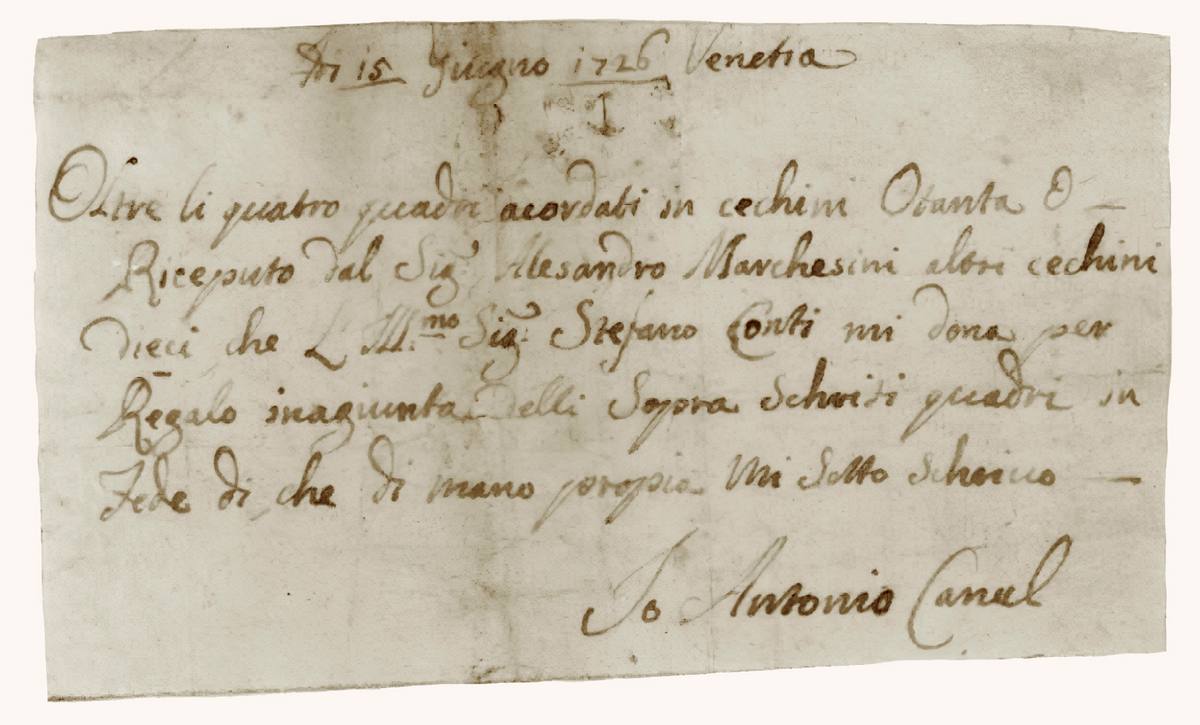 Adi 15 Giugno 1726 Venetia
Oltre li quatro quadri acordati in cechini Otanta O —
Riceputo dal Sig.r Alesandro Marchesini altri cechini
dieci che L Ill.mo Sig.r Stefano Conti mi dona per
Regalo inagiunta delli Sopra Schriti quadri in
Fede di che di mano propia Mi Sotto Schriuo —
Io Antonio Canal